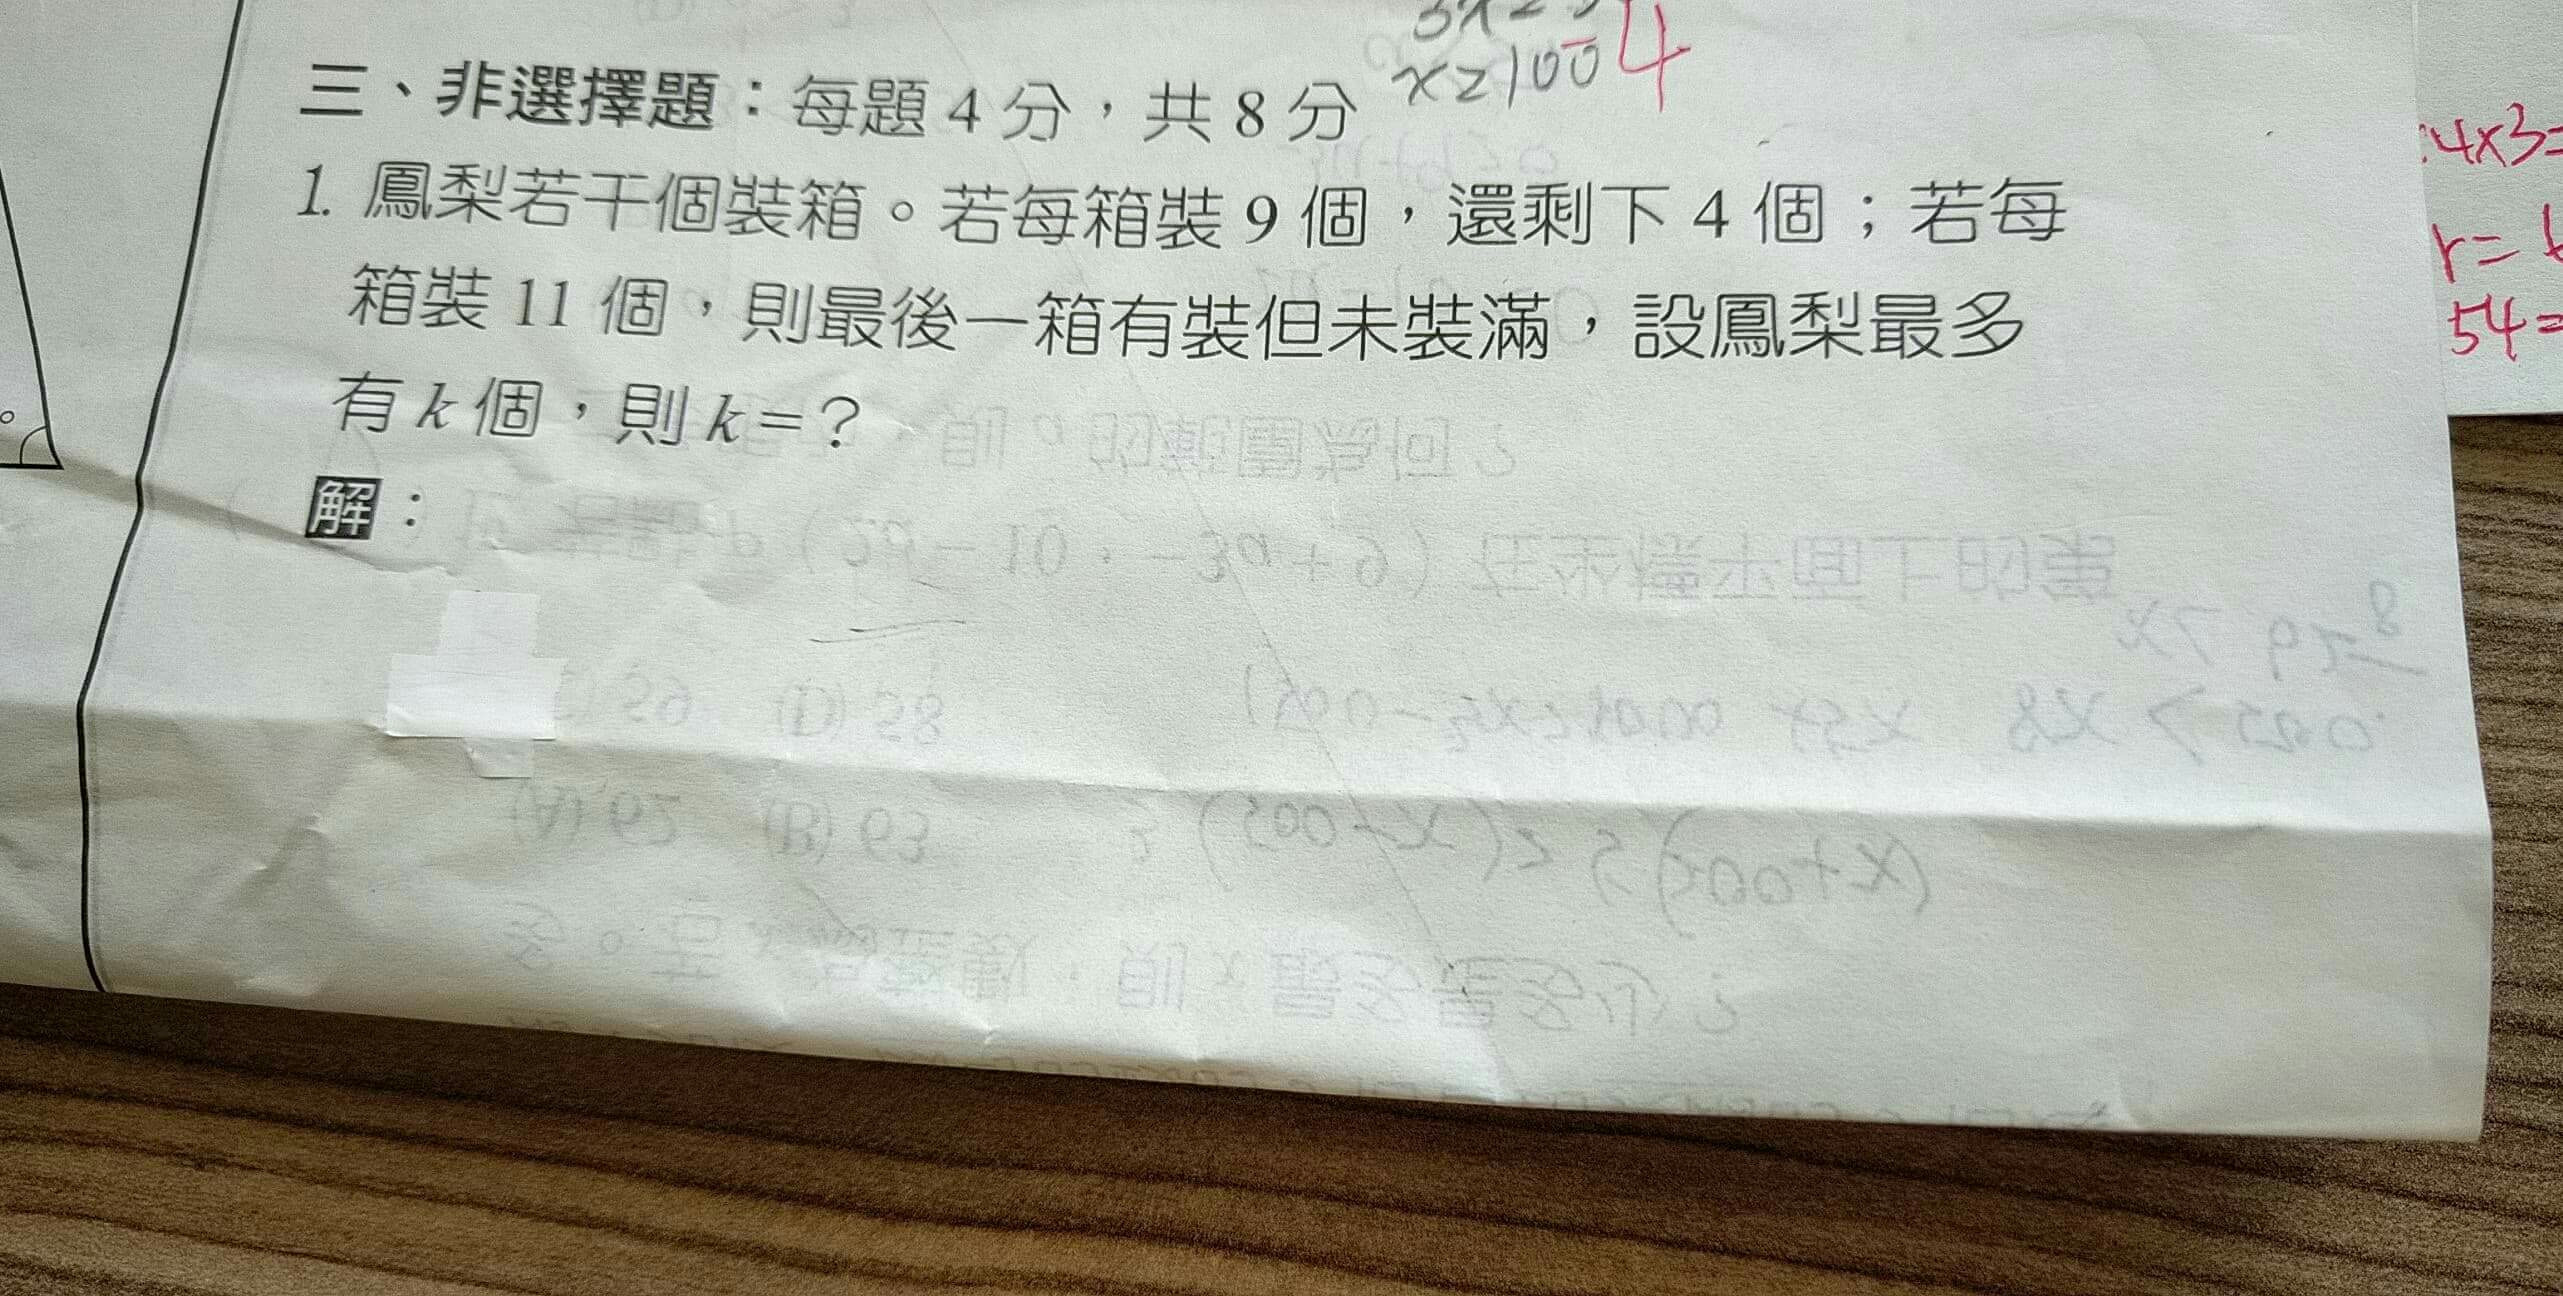 x≥100 4
三、非選擇題：每題 4 分，共 8 分
1. 鳳梨若干個裝箱。若每箱裝 9 個，還剩下 4 個；若每
箱裝 11 個，則最後一箱有裝但未裝滿，設鳳梨最多
有 k 個，則 k=？
解：
4x3=
r=
54=